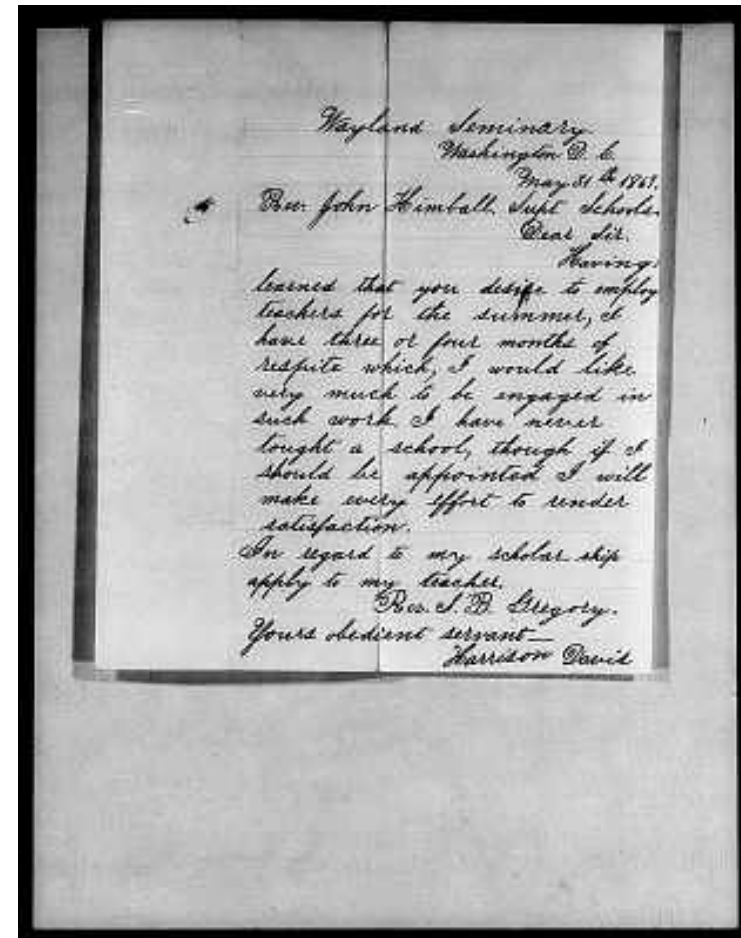 Wayland Seminary.
Washington D. C.
May 31th 1869.
Rev. John Kimball. Supt Schools.
Dear Sir.
Having
learned that you desire to employ
teachers for the summer, I
have three or four months of
respite which, I would like
very much to be engaged in
such work. I have never
tought a school, though if I
should be appointed I will
make every effort to render
satisfaction.
In regard to my scholar ship
apply to my teacher.
Rev. S. B. Gregory.
Yours obedient servant—
Harrison David